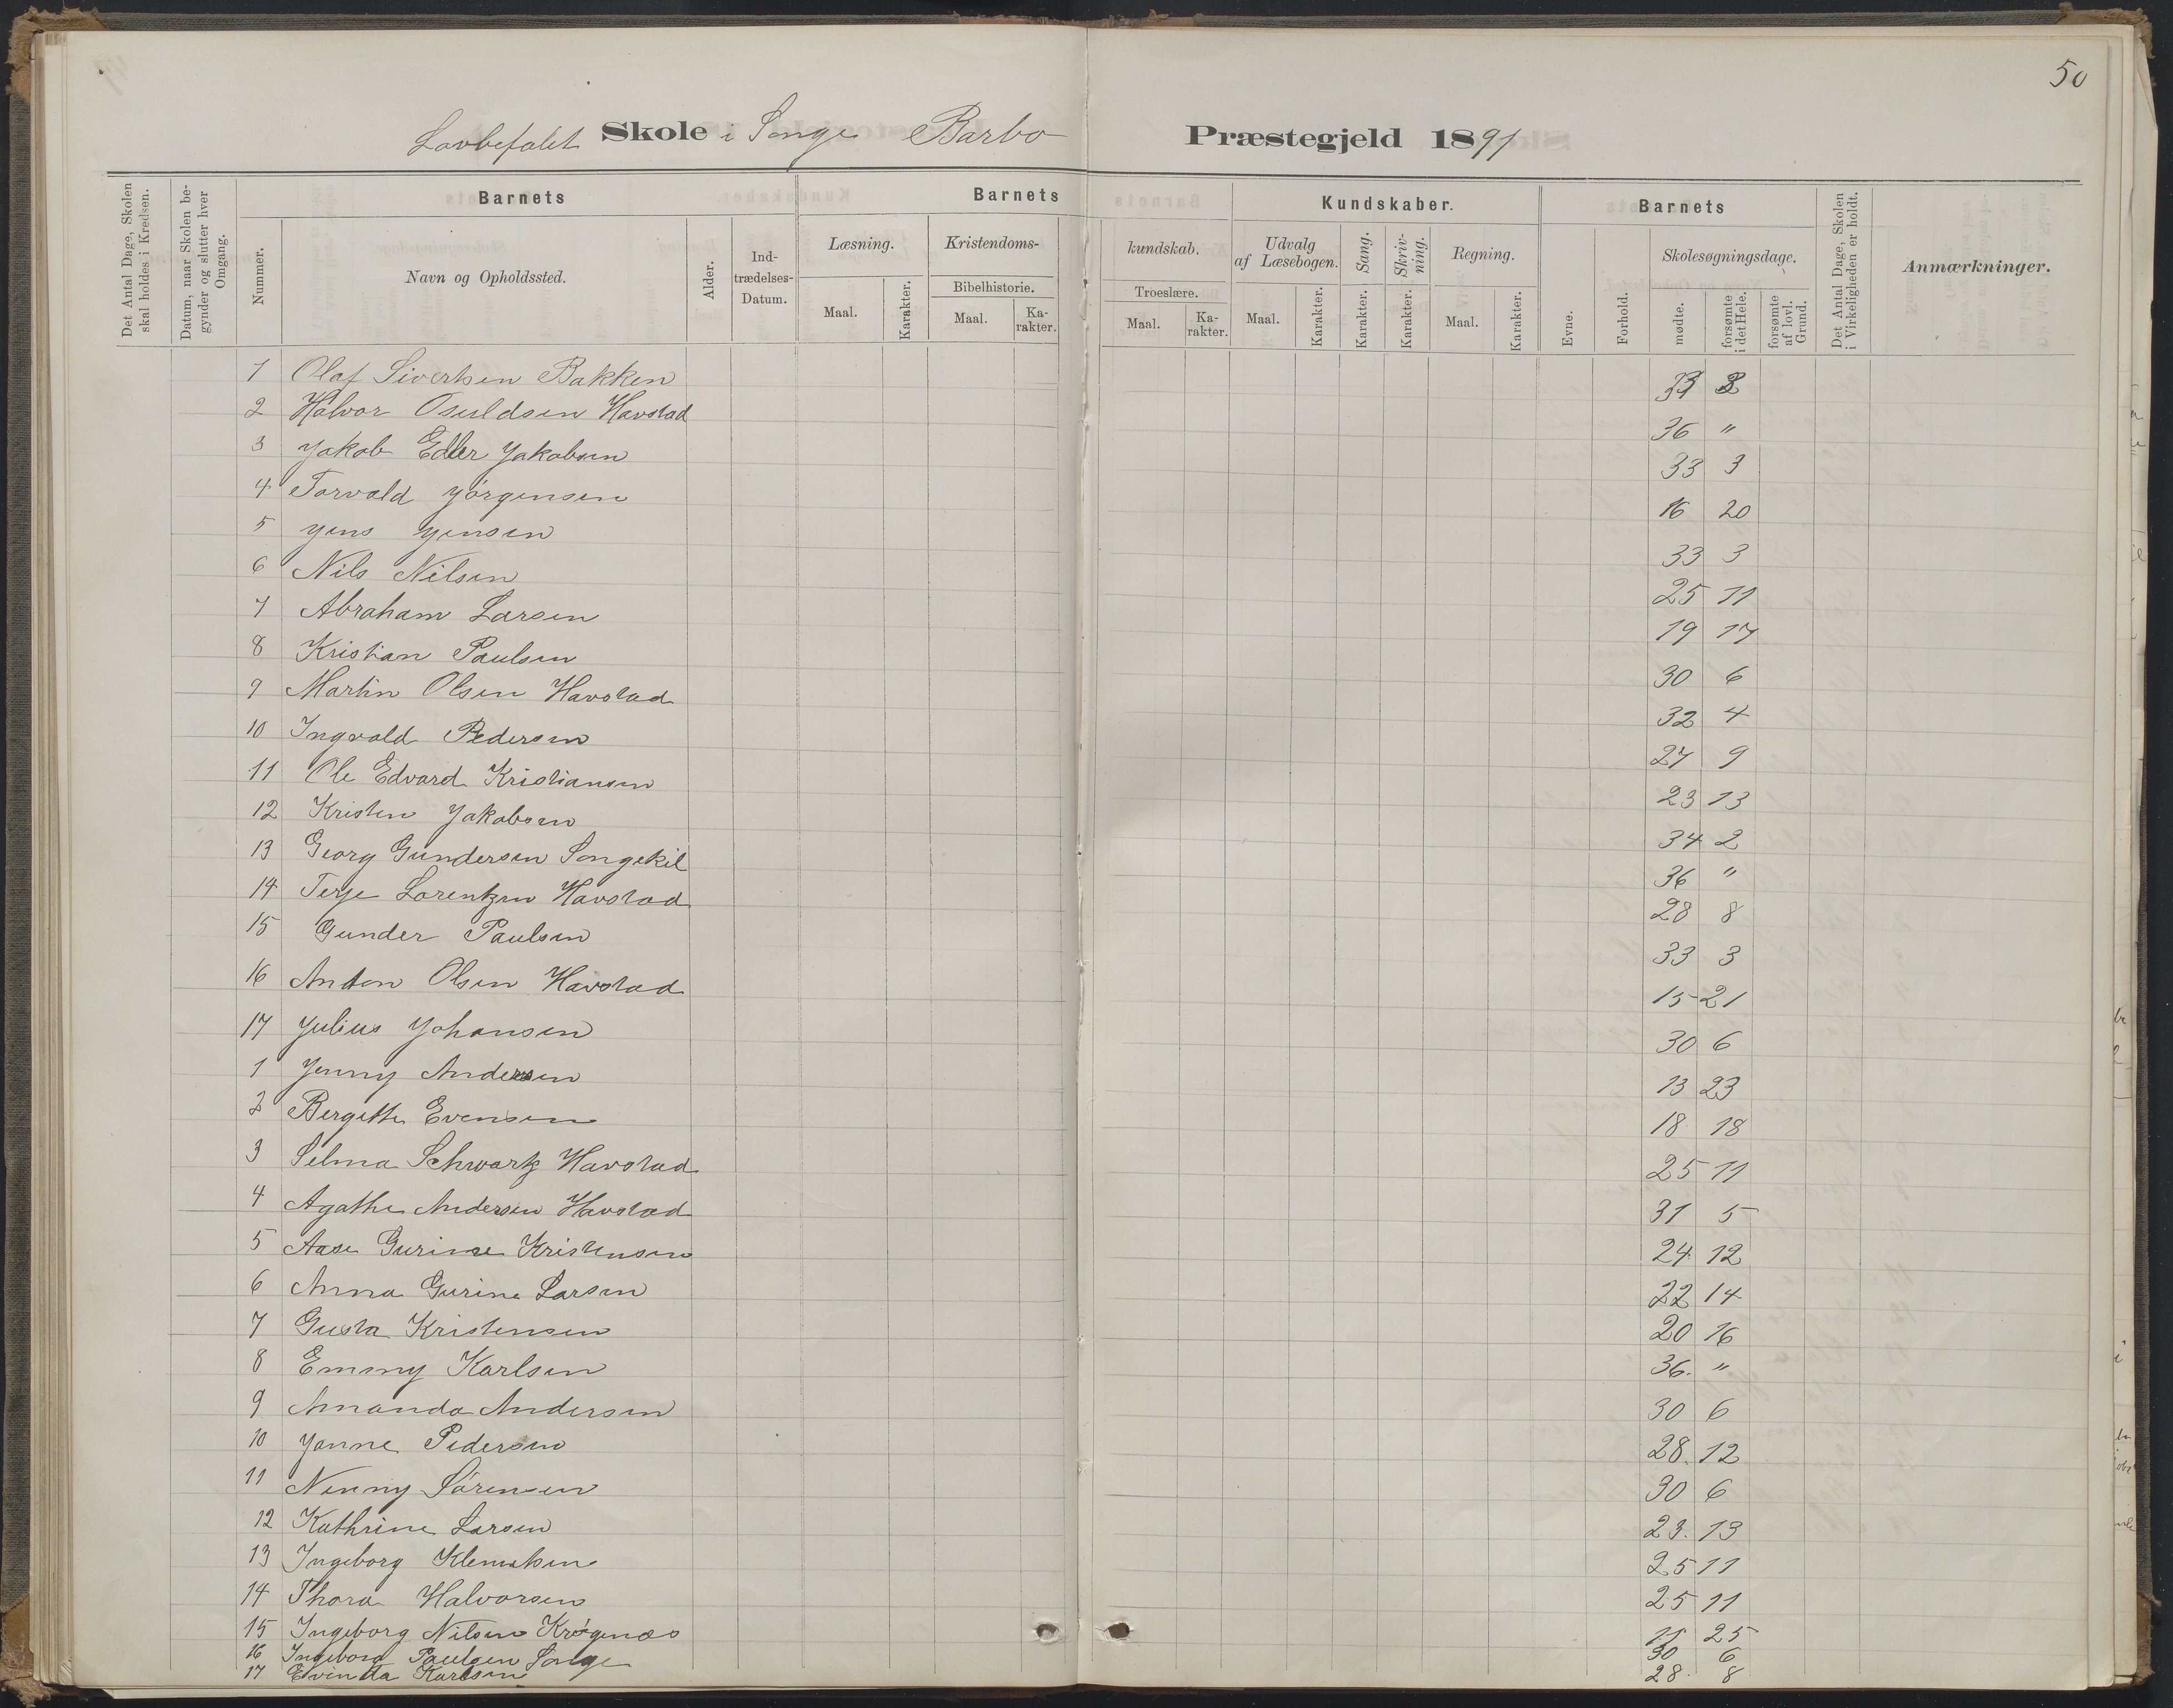 50
Lovbefalet Skole i Songe Barbo Præstegjeld 1891
Det Antal Dage, Skolen skal holdes i Kredsen.
Datum, naar Skolen begynder og slutter hver Omgang.
Barnets
Nummer.
Navn og Opholdssted.
Alder.
Ind-
trædelses-
Datum.
Barnets
Læsning.
Maal.
Karakter.
Kristendoms-
Bibelhistorie.
Maal.
Ka-
rakter.
kundskab.
Troeslære.
Maal.
Ka-
rakter.
Kundskaber.
Udvalg
af Læsebogen.
Maal.
Karakter.
Sang.
Karakter.
Skriv-
ning.
Karakter.
Regning.
Maal.
Karakter.
Barnets
Evne.
Forhold.
Skolesøgningsdage.
mødte.
forsømte
i det Hele.
forsømte
af lovl.
Grund.
Det Antal Dage, Skolen
i Virkeligheden er holdt.
Anmærkninger.
1 Olaf Sivertsen Bakken
2 Halvor Osuldsen Havstad 36 "
3 Jakob Edler Jakobsen 33 3
4 Torvald Jörgensen 16 20
5 Jens Jensen 33 3
6 Nils Nilsen 25 11
7 Abraham Larsen 19 17
8 Kristian Paulsen 30 6
9 Martin Olsen Havstad 32 4
10 Ingvald Pedersen 27 9
11 Ole Edvard Kristiansen 23 13
12 Kristen Jakobsen 34 2
13 Georg Gundersen Songekil 36 "
14 Terje Lorentzen Havstad 28 8
15 Gunder Paulsen 33 3
16 Anton Olsen Havstad 15 21
17 Julius Johansen 30 6
1 Jenny Andersen 13 23
2 Bergitte Evensen 18 18
3 Selma Schwartz Havstad 25 11
4 Agathe Andersen Havstad 31 5
5 Aase Gurine Kristensen 24 12
6 Anna Gurine Larsen 22 14
7 Gusta Kristensen 20 16
8 Emmy Karlsen 36. "
9 Amanda Andersen 30 6
10 Janne Pedersen 28. 12
11 Nenny Sörensen 30 6
12 Kathrine Larsen 23. 13
13 Ingeborg Klemetsen 25 11
14 Thora Halvorsen 25 11
15 Ingeborg Nilsen Krögenæs 11 25
16 Ingeborg Paulsen Songe 30 6
17 Evinda Karlsen 28. 8